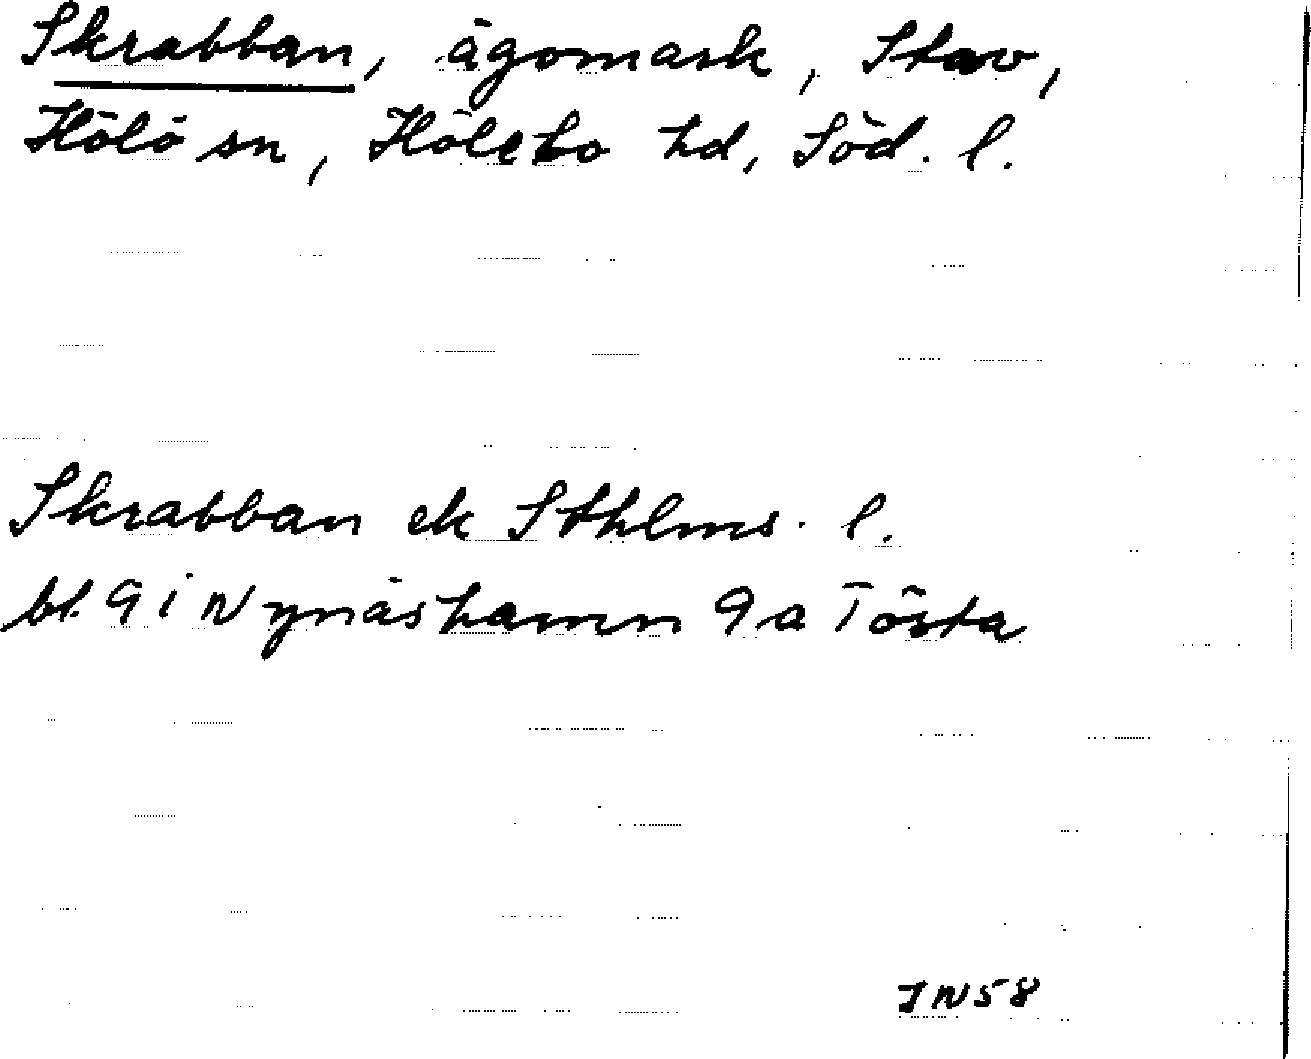 Skrabban, ägomark, Stav,
Hölö sn, Hölebo hd, Söd. l.
Skrabban ek Sthlms. l.
bl. 9 i Nynäshamn 9a Tösta
JN58